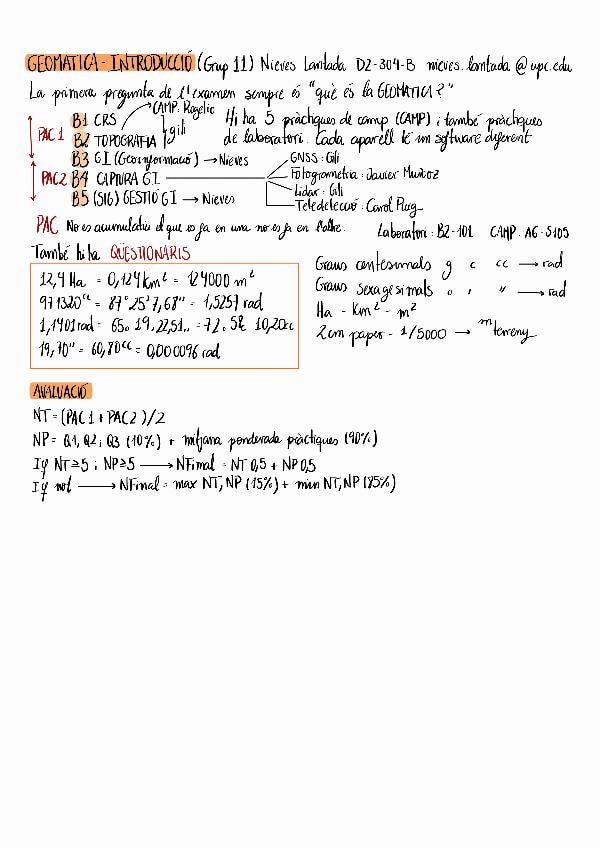 GEOMATICA - INTRODUCCIÓ (Grup 11) Nieves Lantada D2-304-B nieves.lantada@upc.edu
La primera pregunta de l'examen sempre és "què és la GEOMATICA?"
CAMP: Rogelio
PAC 1
B1 CRS
B2 TOPOGRAFIA
Gili
Hi ha 5 pràctiques de camp (CAMP) i també pràctiques
de laboratori. Cada aparell té un software diferent
B3 GI (Geoinformació) → Nieves
PAC2 B4 CAPTURA G.I.
B5 (SIG) GESTIÓ GI → Nieves
GNSS: Gili
Fotogrametria: Javier Muñoz
Lidar: Gili
Teledetecció: Carol Puig
PAC No és acumulatiu el que es fa en una no es fa en l'altre.
Laboratori: B2-101 CAMP: A6-S105
També hi ha QÜESTIONARIS
12,4 Ha = 0,124 km² = 124000 m²
971320ᶜᶜ = 87° 25' 7,68'' = 1,5257 rad
1,1401 rad = 65° 19, 22,51,, = 72. 58 10,20cc
19,70'' = 60,80ᶜᶜ = 0,000096 rad
Graus centesimals g c cc → rad
Graus sexagesimals ° ' '' → rad
Ha - Km² - m²
2cm paper - 1/5000 → m terreny
AVALUACIÓ
NT = (PAC 1 + PAC 2)/2
NP = Q1, Q2 i Q3 (10%) + mitjana ponderada pràctiques (90%)
If NT≥5 i NP≥5 → NFinal = NT 0,5 + NP 0,5
If not → NFinal = max NT, NP (15%) + min NT, NP (85%)